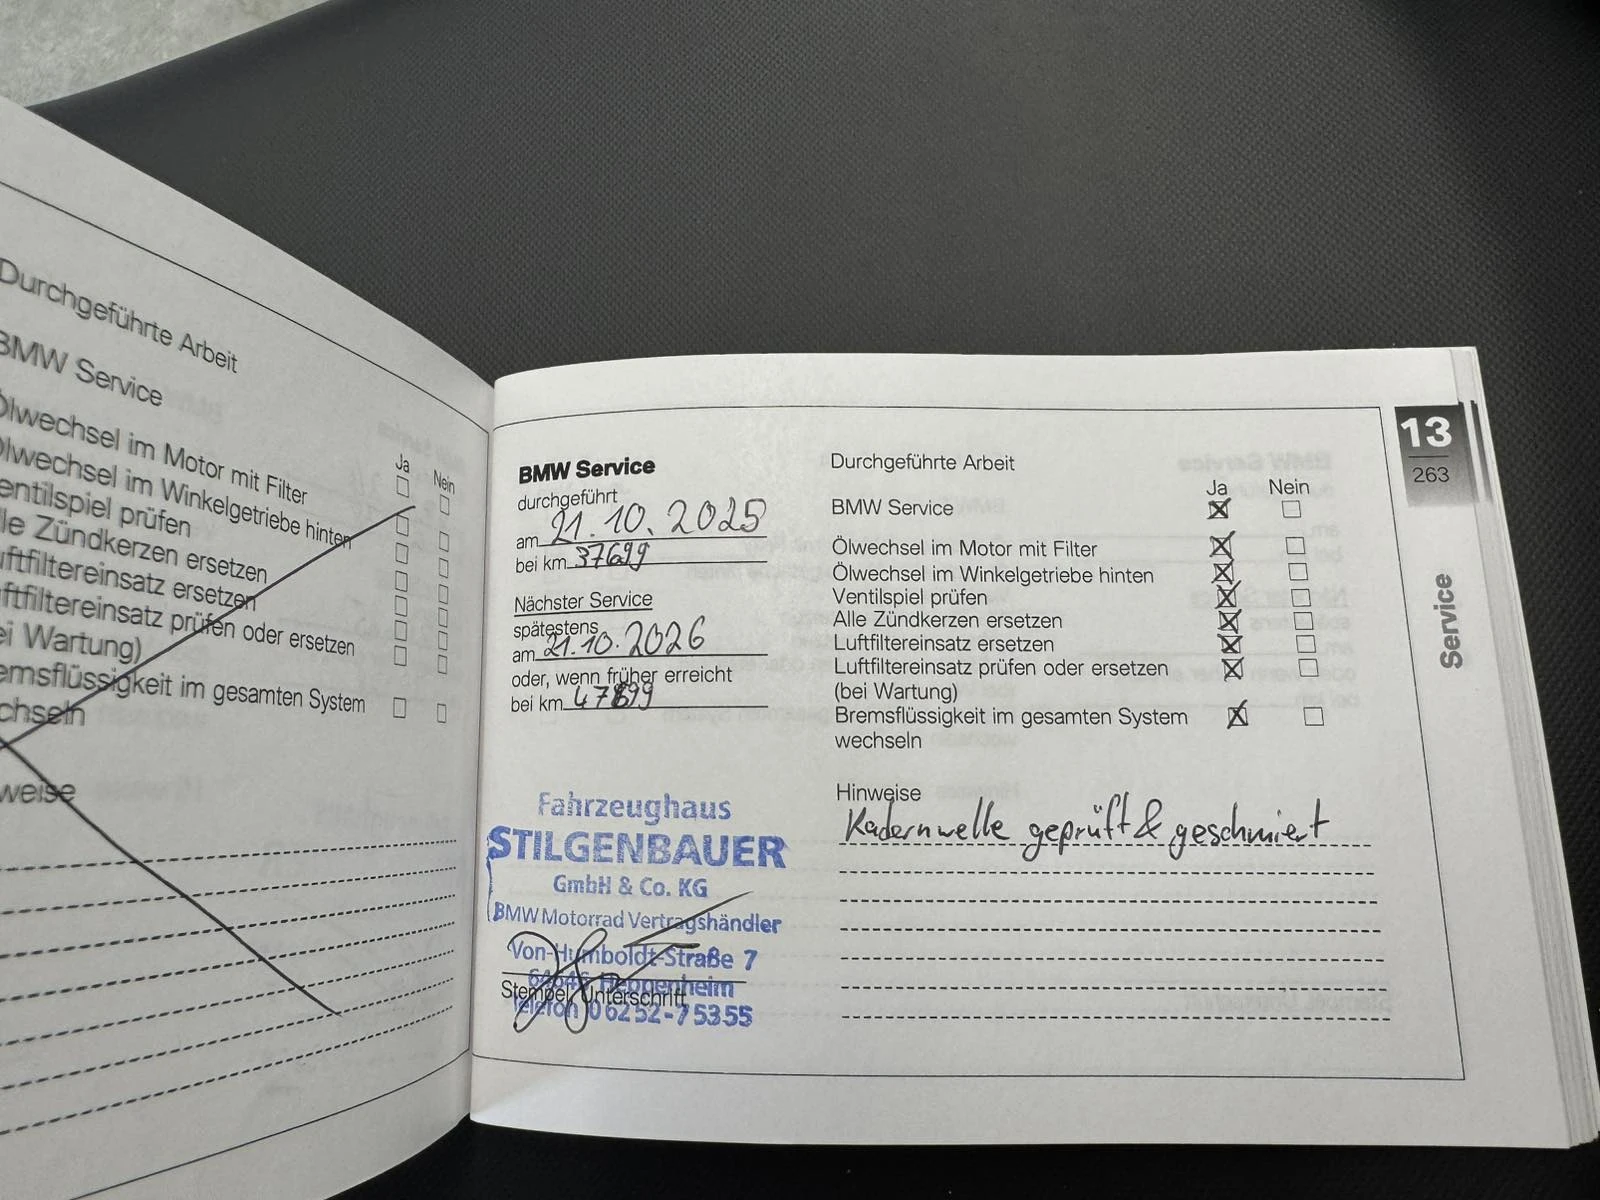 Durchgeführte Arbeit
BMW Service
Ja Nein
Ölwechsel im Motor mit Filter
Ölwechsel im Winkelgetriebe hinten
entilspiel prüfen
lle Zündkerzen ersetzen
uftfiltereinsatz ersetzen
uftfiltereinsatz prüfen oder ersetzen
ei Wartung)
emsflüssigkeit im gesamten System
chseln
weise
BMW Service
durchgeführt
am 21.10.2025
bei km 37699
Nächster Service
spätestens
am 21.10.2026
oder, wenn früher erreicht
bei km 47699
Fahrzeughaus
STILGENBAUER
GmbH & Co. KG
BMW Motorrad Vertragshändler
Von-Humboldt-Straße 7
64646 Heppenheim
Stempel, Unterschrift
Telefon 06252-75355
Durchgeführte Arbeit
Ja Nein
BMW Service
Ölwechsel im Motor mit Filter
Ölwechsel im Winkelgetriebe hinten
Ventilspiel prüfen
Alle Zündkerzen ersetzen
Luftfiltereinsatz ersetzen
Luftfiltereinsatz prüfen oder ersetzen
(bei Wartung)
Bremsflüssigkeit im gesamten System
wechseln
Hinweise
Kadernwelle geprüft & geschmiert
13
263
Service